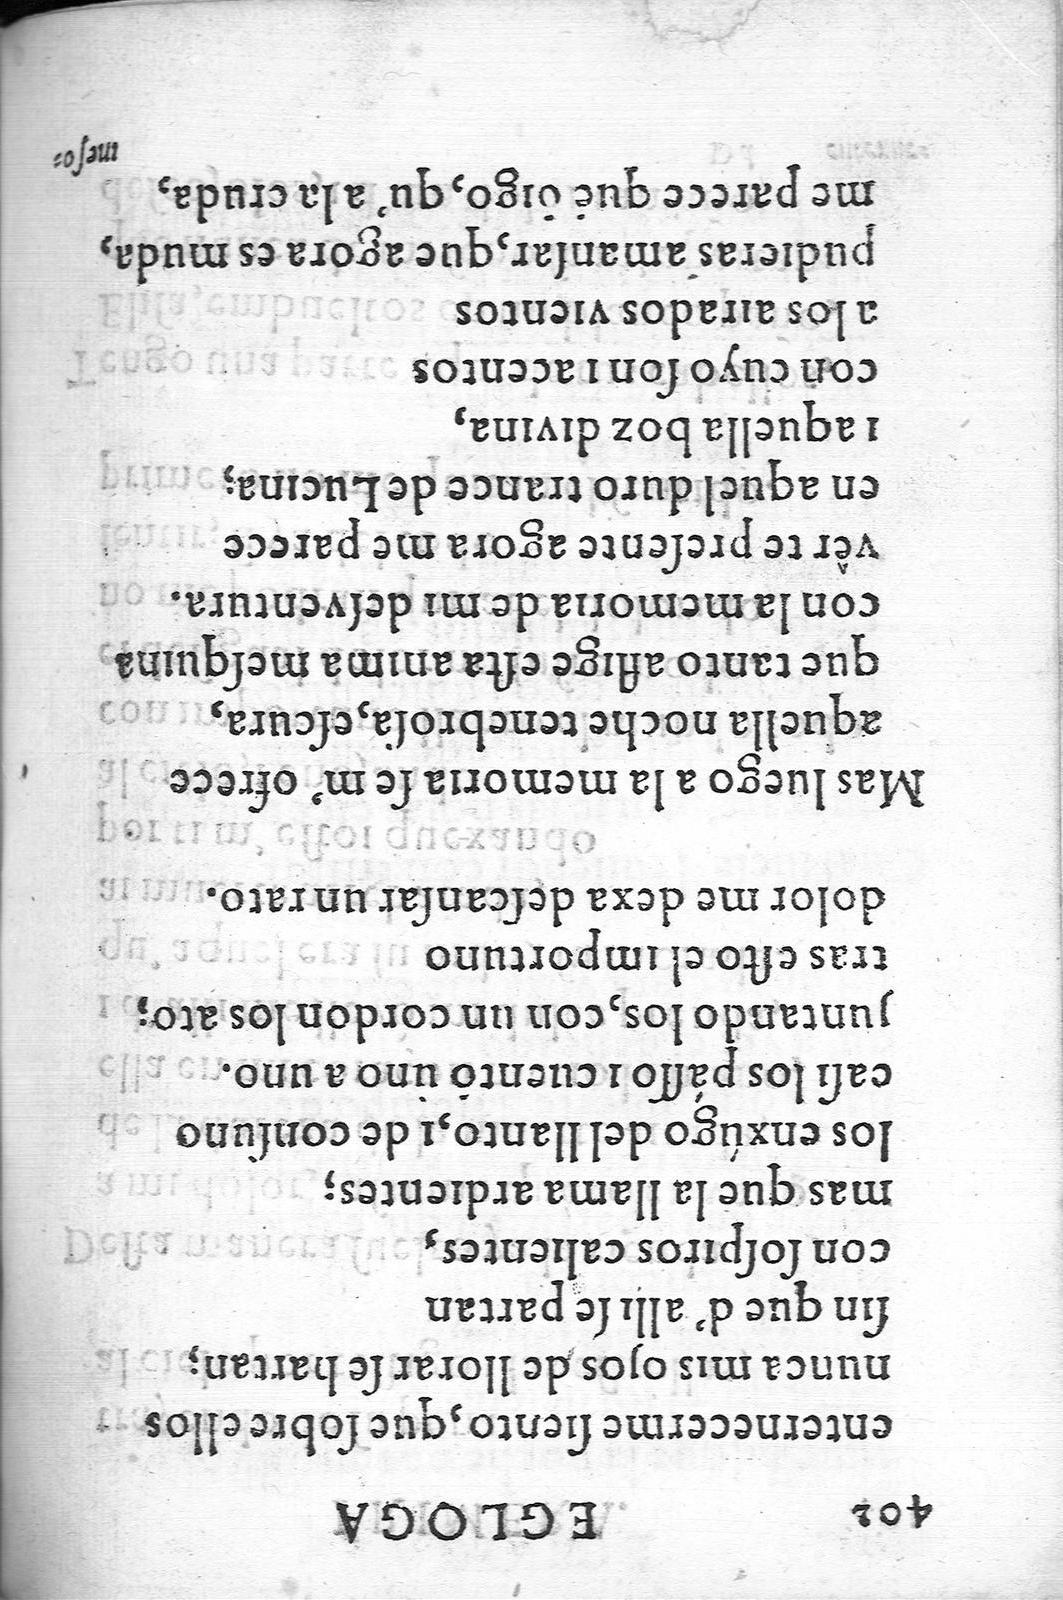 402 EGLOGA
enternecerme ſiento, que ſobre ellos
nunca mis ojos de llorar ſe hartan;
ſin que d' alli ſe partan
con ſoſpiros calientes,
mas que la llama ardientes;
los enxúgo del llanto, i de conſuno
caſi los páſſo i cuentò ùno a uno.
juntando los, con un cordon los ato;
tras eſto el importuno
dolor me dexa deſcanſar un rato.
Mas luego a la memoria ſe m' ofrece
aquella noche tenebroſa, eſcura,
que tanto aflige eſta anima meſquina
con la memoria de mi deſventura.
vêr te preſente agora me parece
en aquel duro trance de Lucina;
i aquella boz divina,
con cuyo ſon i acentos
a los airados vientos
pudieras amanſar, que agora es muda,
me parece què òigo, qu' a la cruda,
ineſo-